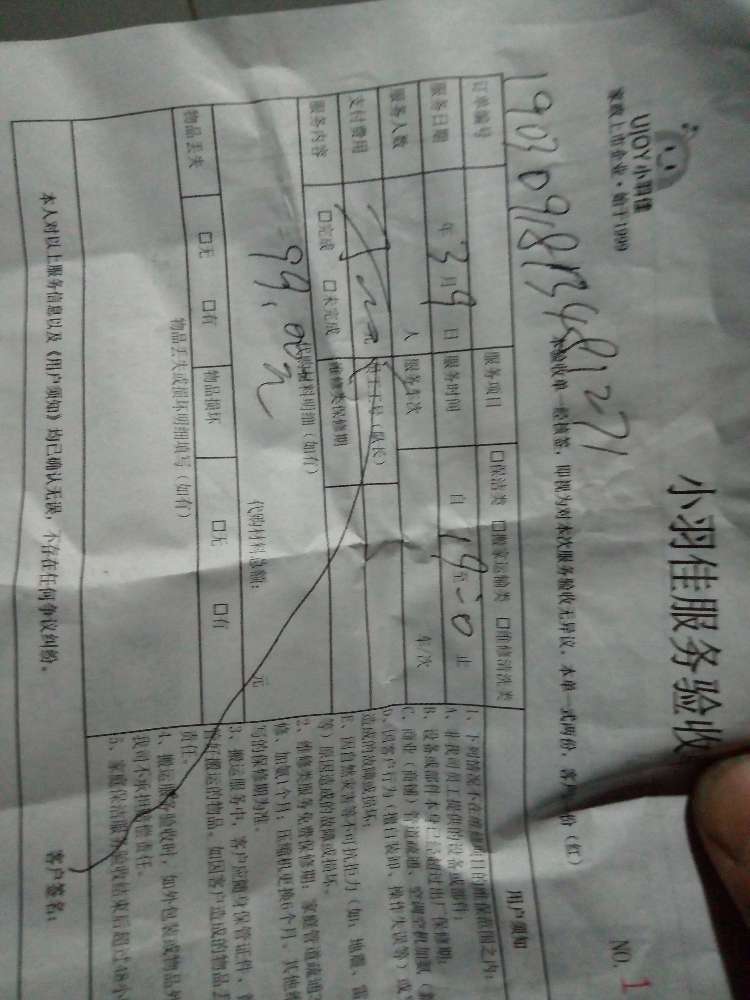 UJOY小羽佳
家政上市企业·始于1999
小羽佳服务验收
NO. 1
本验收单一经核签,即视为对本次服务验收无异议。本单一式两份,客户 份(红)
订单编号
服务项目 □保洁类 □搬家运输类 □维修清洗类
服务日期 年 3 月 9 日 服务时间 自 19 至 20 止
服务人数 人 服务车次 车/次
支付费用 员工工号(队长)
服务内容 □完成 □未完成 维修类保修期
代购材料明细(如有)
99.00元
代购材料总额: 元
物品丢失 □无 □有 物品损坏 □无 □有
物品丢失或损坏明细填写(如有)
本人对以上服务信息以及《用户须知》均已确认无误,不存在任何争议纠纷。
客户签名:
用户须知
1、下列情况不在维修项目的质保范围之内:
A、非我司员工提供的设备或部件;
B、设备或部件本身已经超过出厂保修期;
C、商业(商铺)管道疏通、空调空机加氨(
D、因客户行为(擅自装卸、操作失误等)或
造成的故障或损坏;
E、因自然灾害等不可抗拒力(如:地震、雷
等)原因造成的故障或损坏。
2、维修类服务免费保修期:家庭管道疏通
修、加氨1个月;压缩机更换6个月。其他
写的保修期为准。
3、搬运服务中,客户应随身保管证件、
管好搬运的物品。如因客户造成的物品丢
责任。
4、搬运服务验收时,如外包装或物品外
我司不承担赔偿责任。
5、家庭保洁服务验收结束后超过48小